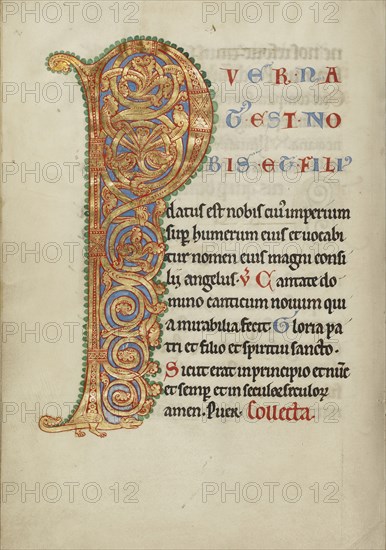 P
VER·NA
T'EST·NO
BIS·ET·FILI'
datus est nobis cui' imperium
sup humerum eius et vocabi
tur nomen eius magni consi
lij angelus· V Cantate do
mino canticum nouum qui
a mirabilia fecit· Gloria pa
tri et filio et spiritui sancto·
Sicut erat in principio et nūc
et semp et in secula seculoꝝ
amen· Puer· Collecta
PHOTO 12